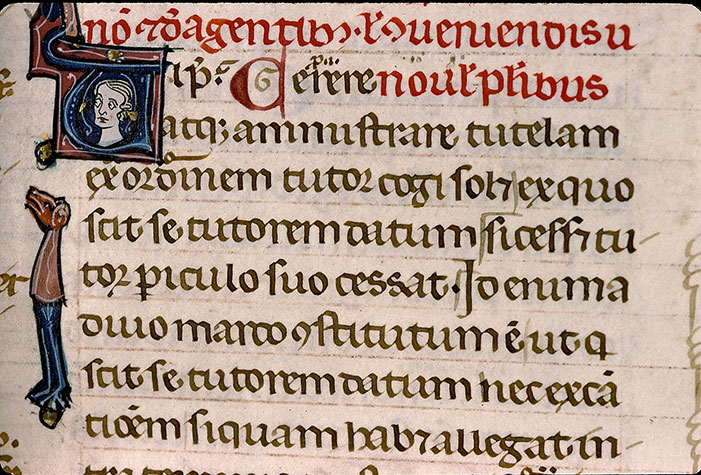 nō ꝯ̄agentibꝫ · ł ꝯueniendis u
Ulp̄ꝰ Gerere no ul̓ pl̓ibus
atqꝫ aminustrare tutelam
ex ordinem tutor cogi solꝫ ex quo
scit se tutorem datum si cessꝫ tu-
tor ꝑiculo suo cessat · Id enim a
diuo marco ꝯstitutum ē ut q
scit se tutorem datum nec excā
tiōem si quam habꝫ allegat in-